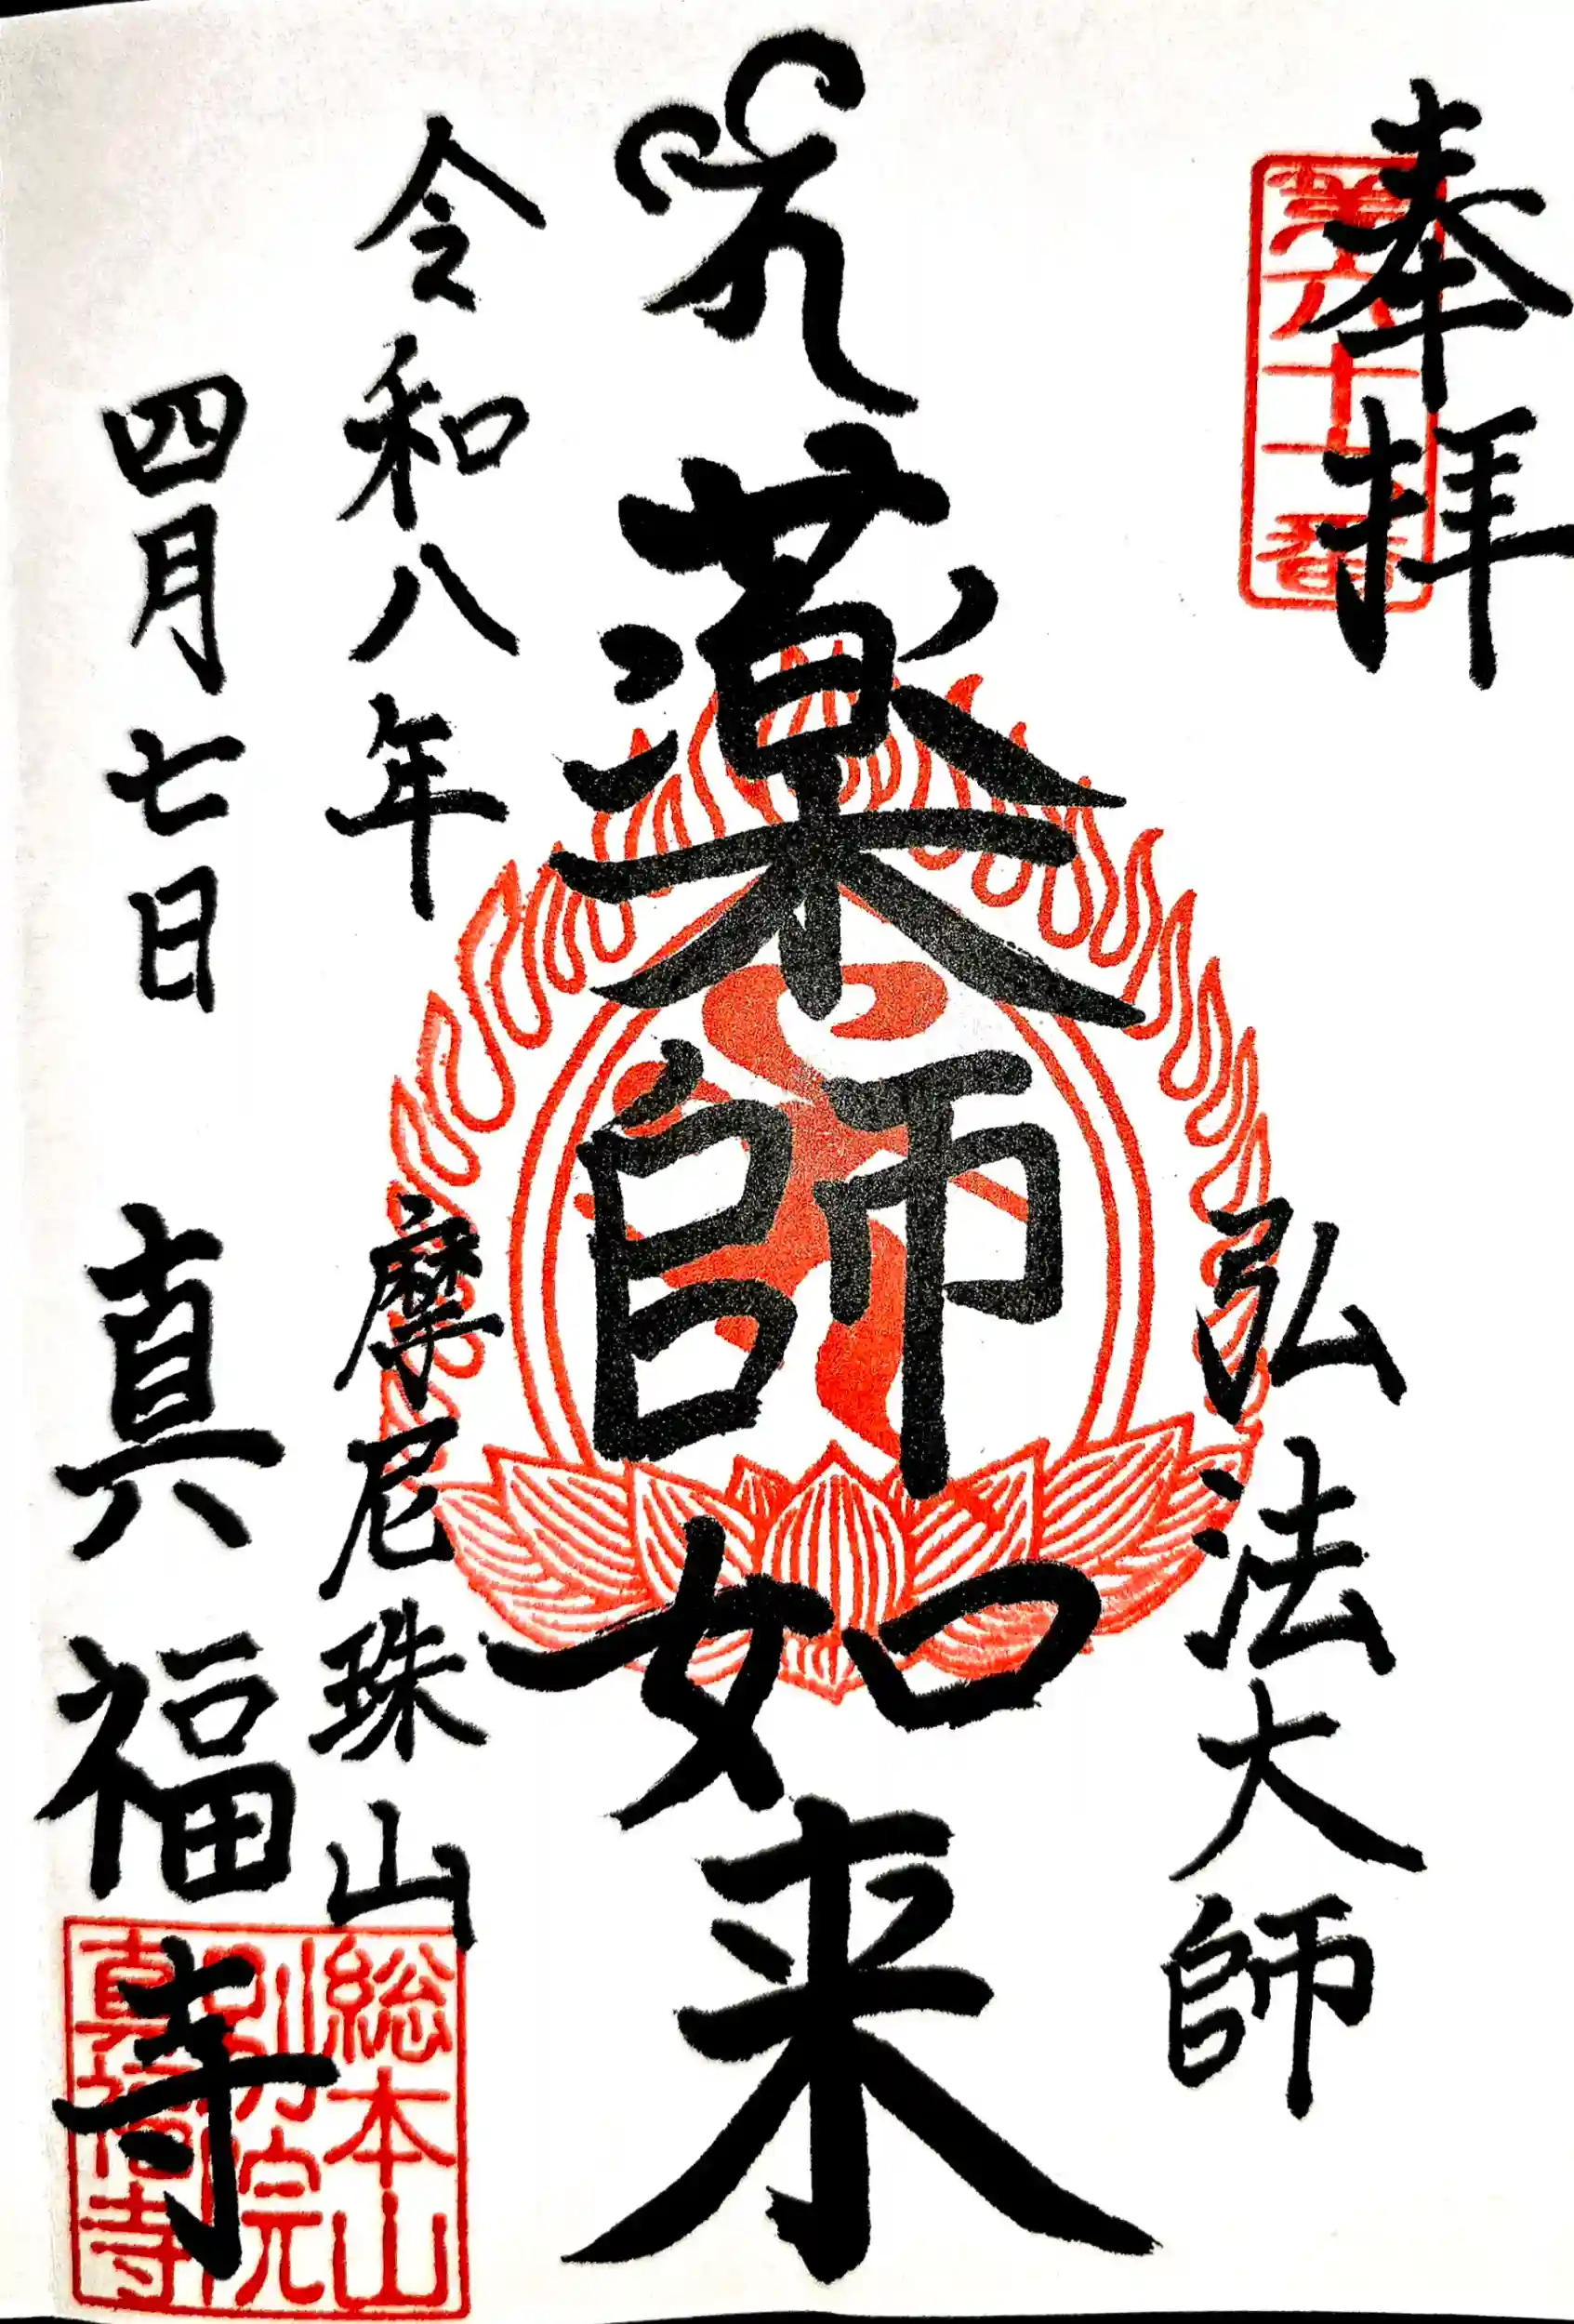 奉拝
第六十七番
弘法大師
薬師如来
令和八年
四月七日
摩尼珠山
真福寺
総本山
別院
真福寺